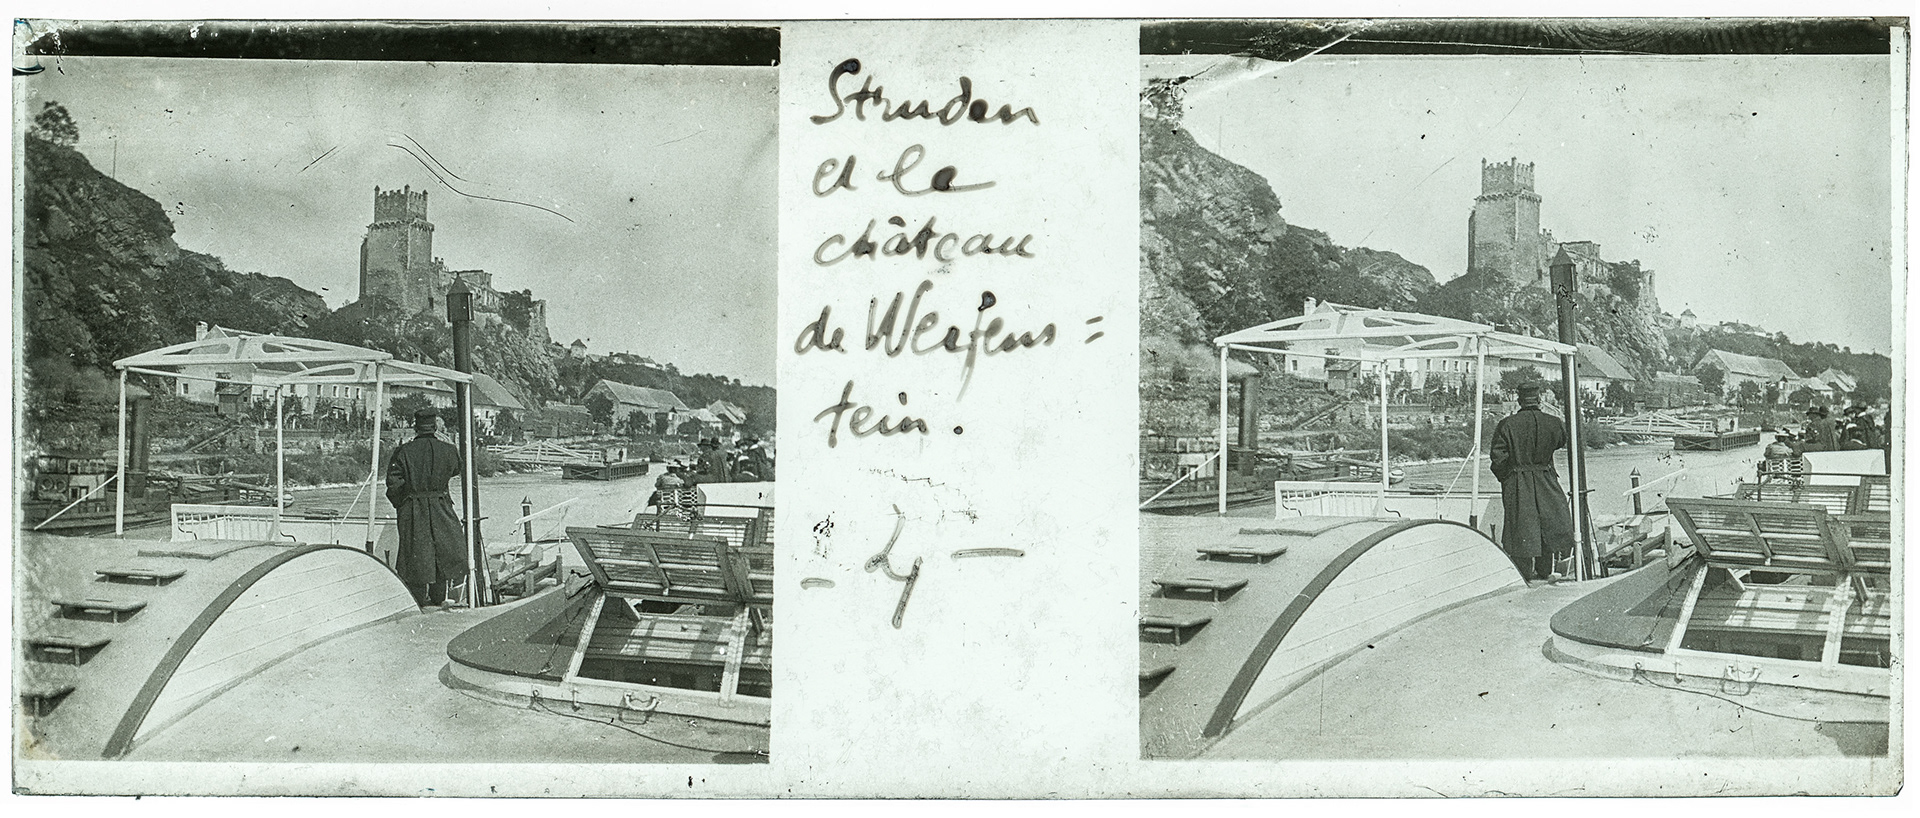 Struden
et le
château
de Werfens =
tein.
- 4 -